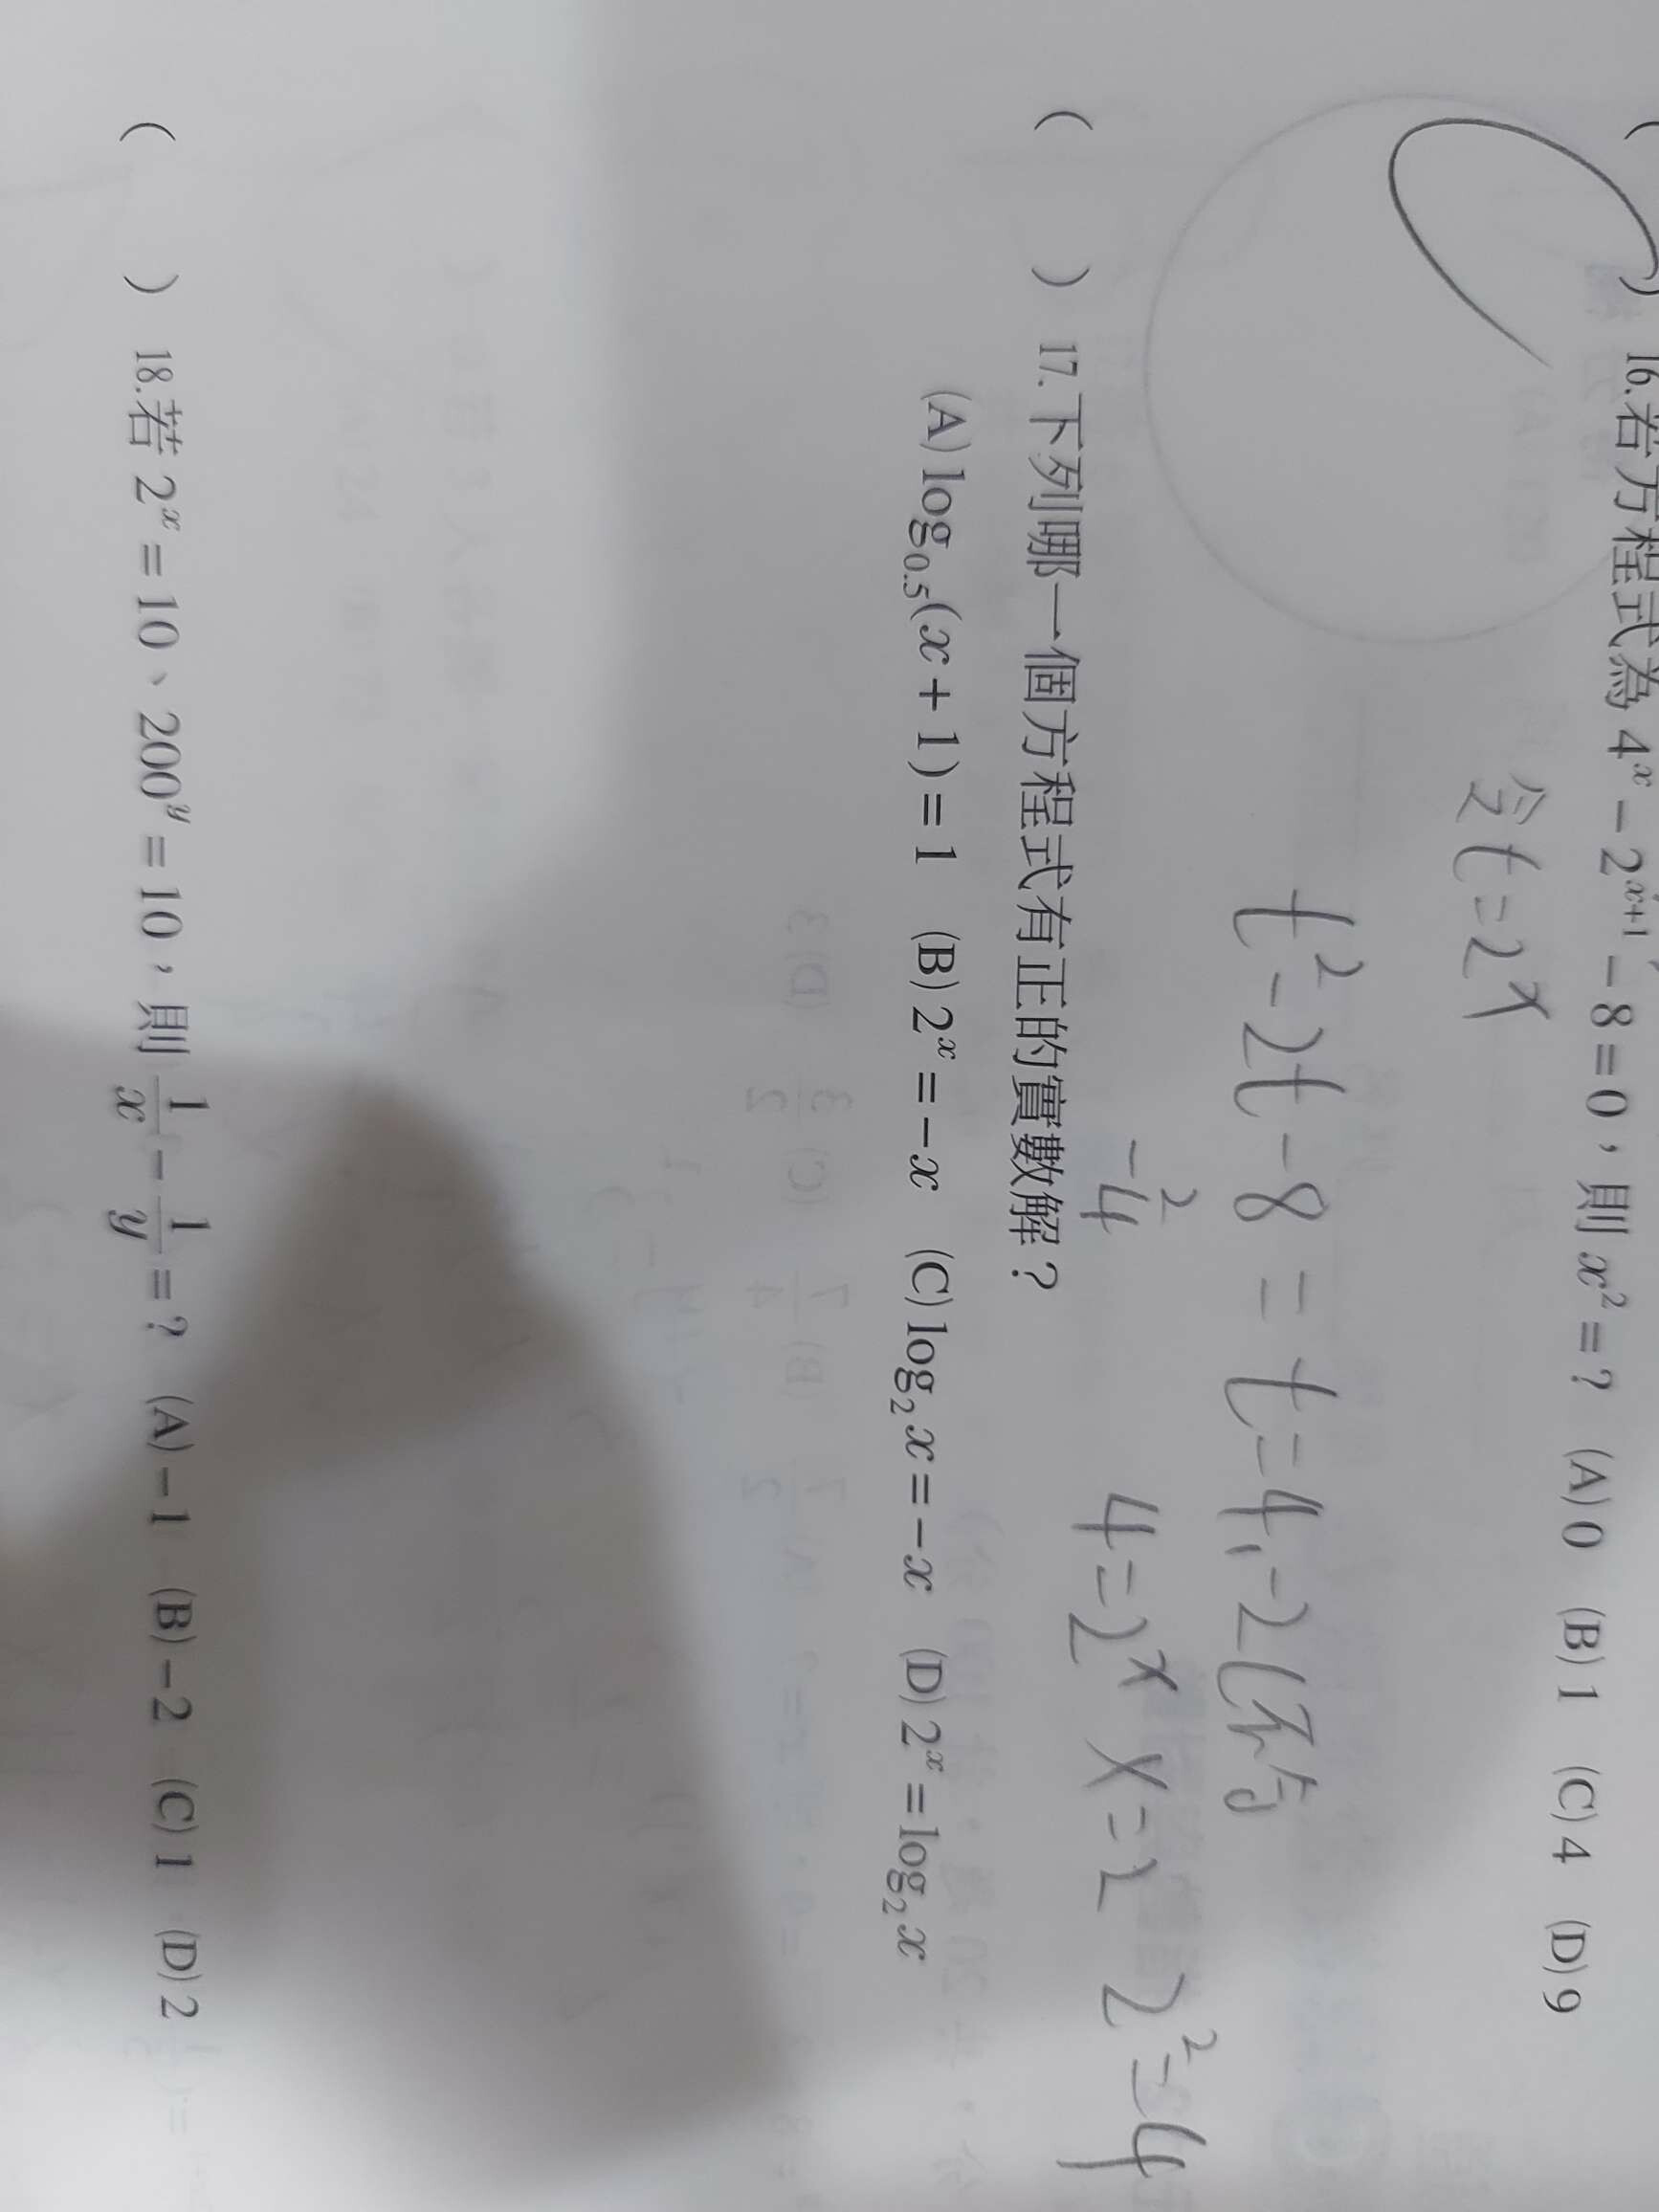 ( ) 16.若方程式為 4^x − 2^{x+1} − 8 = 0，則 x² = ？ (A) 0 (B) 1 (C) 4 (D) 9
令 t = 2^x
t² − 2t − 8 = t = 4, −2(不合
−4² 4 = 2^x x = 2 2² = 4
( ) 17.下列哪一個方程式有正的實數解？
(A) log₀.₅(x + 1) = 1 (B) 2^x = −x (C) log₂ x = −x (D) 2^x = log₂ x
( ) 18.若 2^x = 10、200^y = 10，則 1/x − 1/y = ？ (A) −1 (B) −2 (C) 1 (D) 2